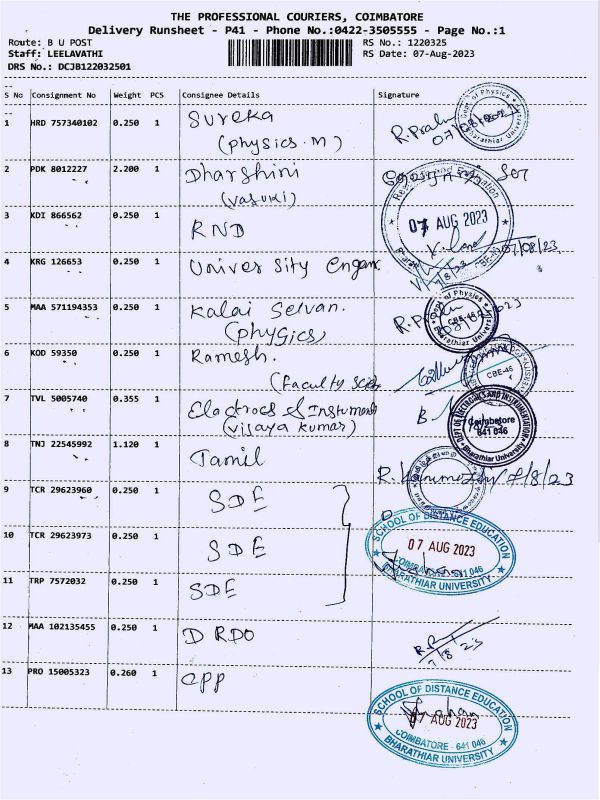 THE PROFESSIONAL COURIERS, COIMBATORE
Delivery Runsheet - P41 - Phone No.:0422-3505555 - Page No.:1
Route: B U POST
RS No.: 1220325
Staff: LEELAVATHI
RS Date: 07-Aug-2023
DRS No.: DCJB122032501
S No Consignment No Weight PCS Consignee Details Signature
1 HRD 757340102 0.250 1 Sureka
(physics.m)
Dept of Physics
Bharathiar University
2 PDK 8012227 2.200 1 Dharshini
(vasuki)
3 KDI 866562 0.250 1 RND
07 AUG 2023
4 KRG 126653 0.250 1 University
07/08/23
7/8/23
5 MAA 571194353 0.250 1 Kalai Selvan.
(physics)
Dept of Physics
CBE-46
Bharathiar University
6 KOD 59350 0.250 1 Ramesh.
(Faculty
CBE-46
7 TVL 5005740 0.355 1 Electrocs & Instuments
(vijaya kumar)
DEPT OF ELECTRONICS AND INSTRUMENTATION
Coimbatore
641 046
Bharathiar University
8 TNJ 22545992 1.120 1 Tamil
7/8/23
9 TCR 29623960 0.250 1 SDE
10 TCR 29623973 0.250 1 SDE
SCHOOL OF DISTANCE EDUCATION
07 AUG 2023
COIMBATORE - 641 046
BHARATHIAR UNIVERSITY
11 TRP 7572032 0.250 1 SDE
12 MAA 102135455 0.250 1 DRDO
7/8/23
13 PRO 15005323 0.260 1 cpp
SCHOOL OF DISTANCE EDUCATION
07 AUG 2023
COIMBATORE - 641 046
BHARATHIAR UNIVERSITY